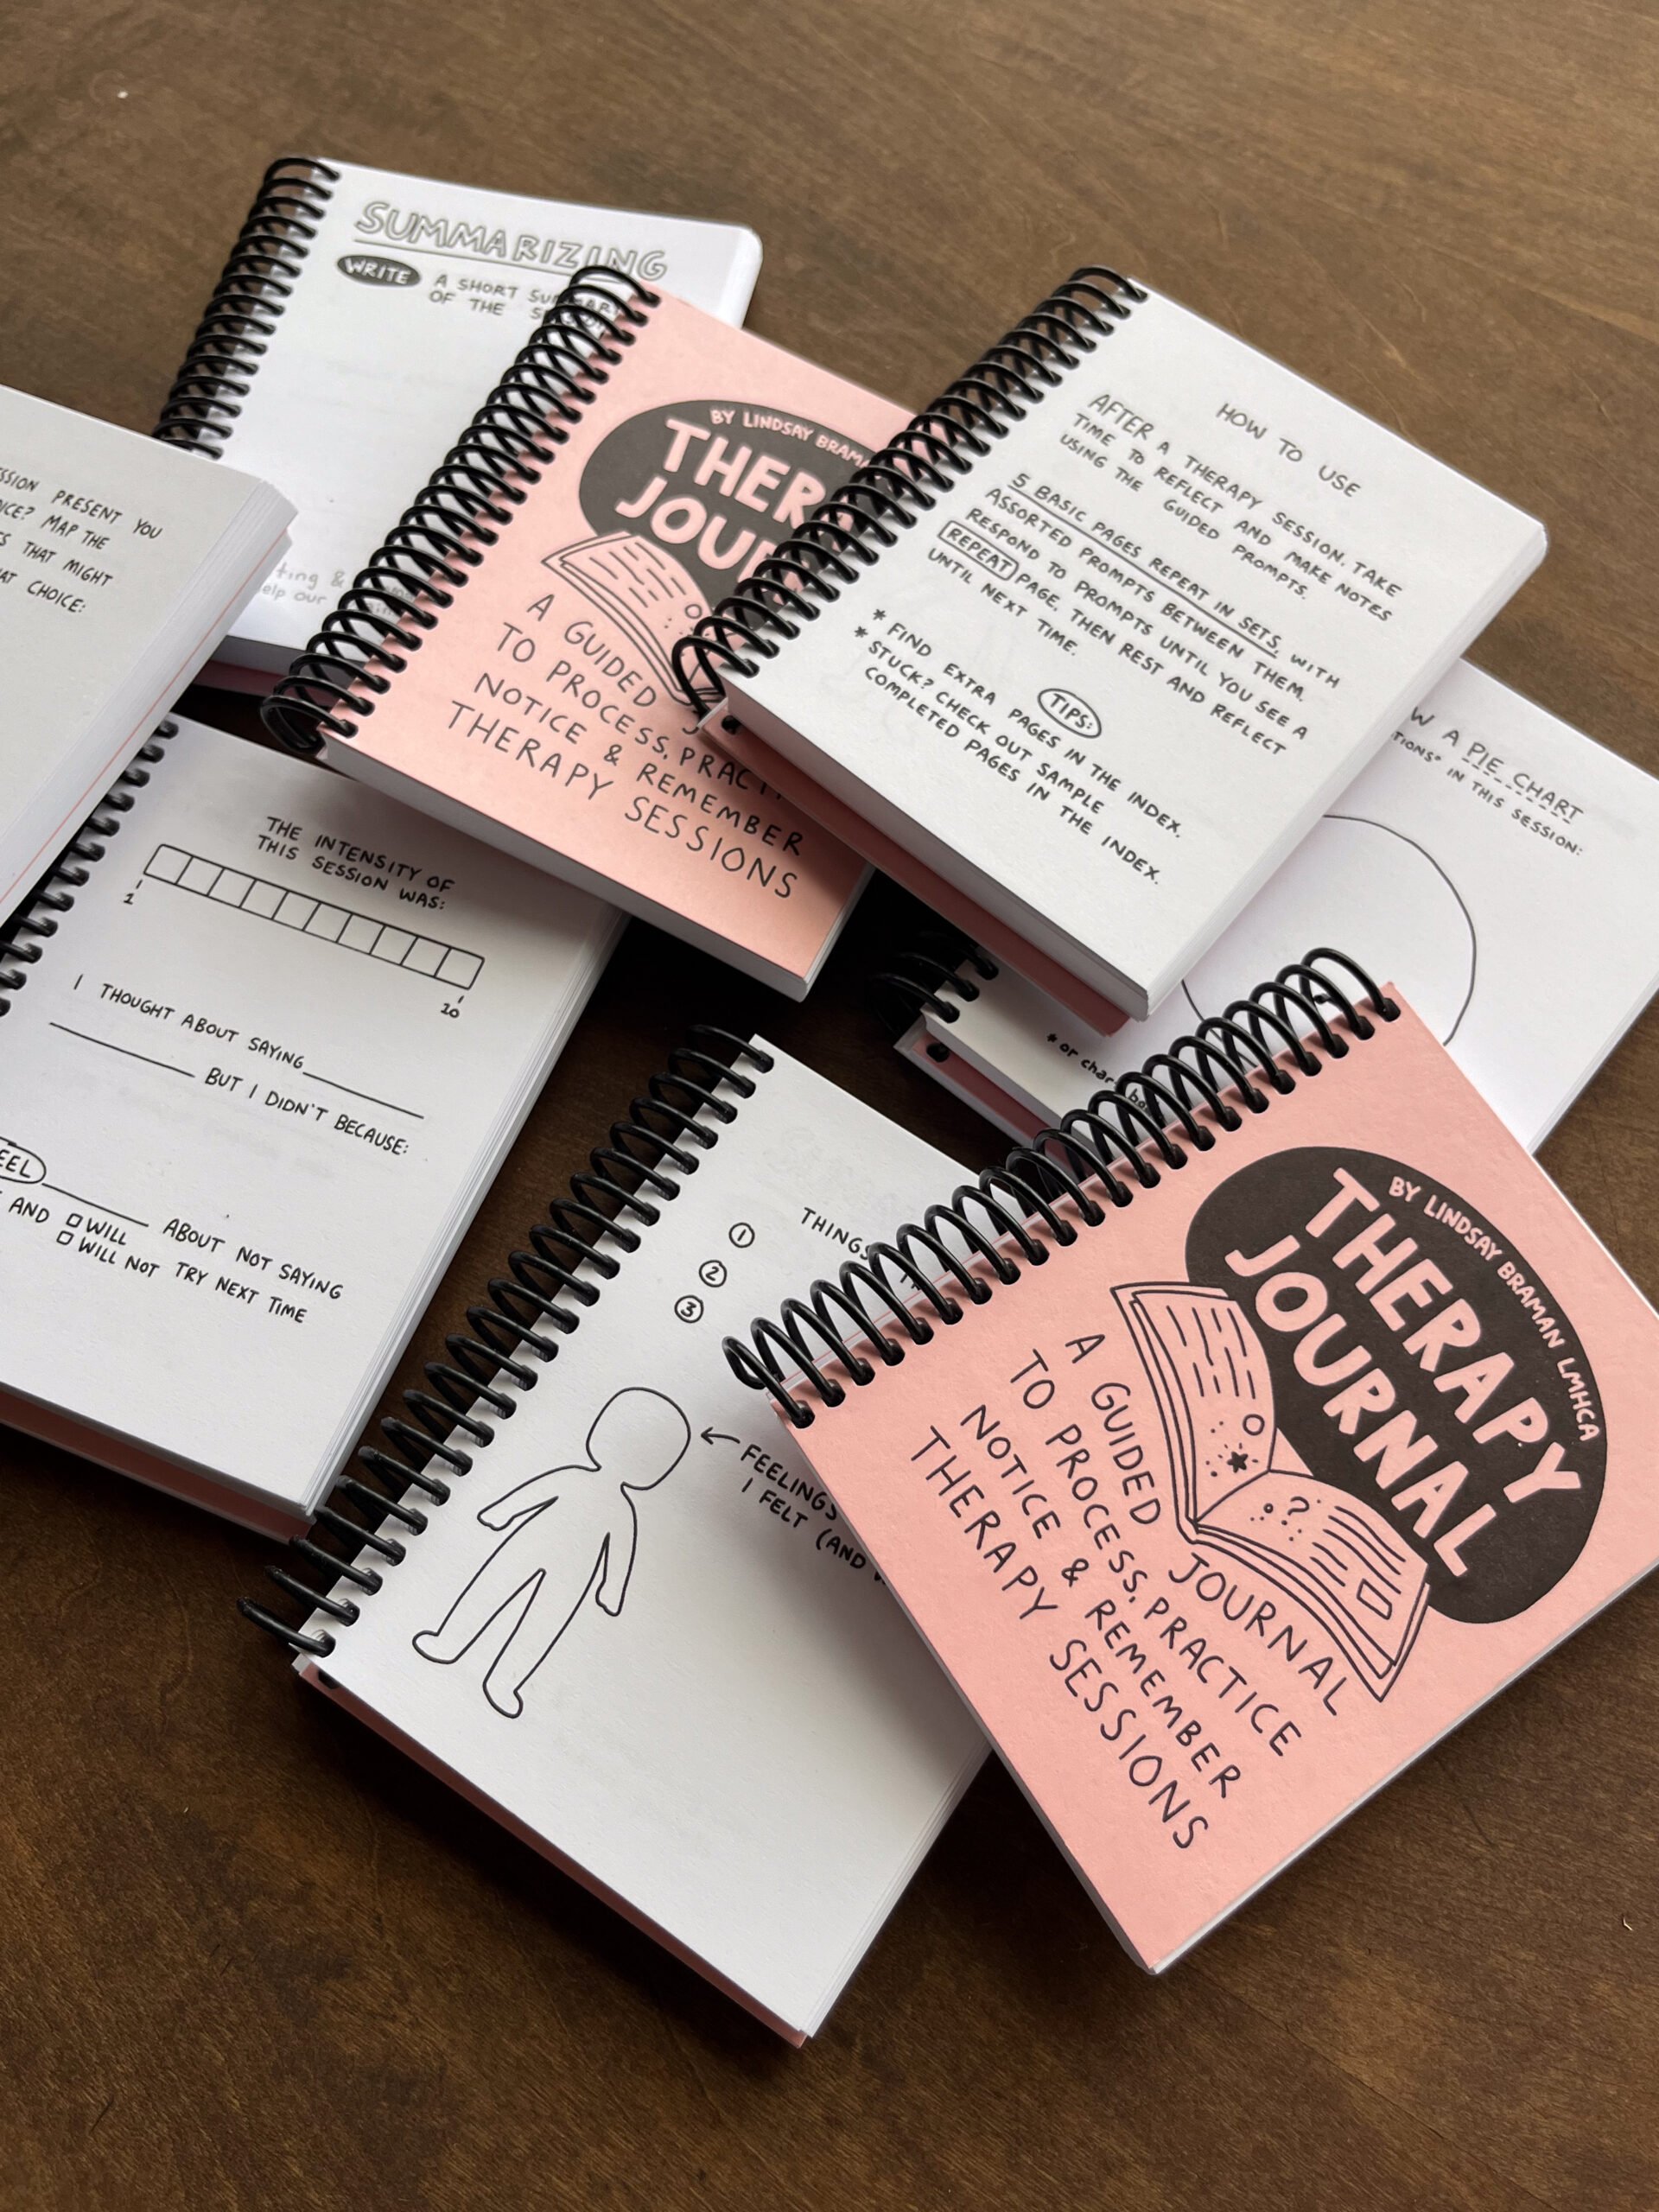 SUMMARIZING
WRITE A SHORT SUMMARY
OF THE
BY LINDSAY
THERAPY
JOURNAL
A GUIDED
TO PROCESS, PRACT
NOTICE & REMEMBER
THERAPY SESSIONS
HOW TO USE
AFTER A THERAPY SESSION, TAKE
TIME TO REFLECT AND MAKE NOTES
USING THE GUIDED PROMPTS.
5 BASIC PAGES REPEAT IN SETS, WITH
ASSORTED PROMPTS BETWEEN THEM.
RESPOND TO PROMPTS UNTIL YOU SEE A
REPEAT PAGE, THEN REST AND REFLECT
UNTIL NEXT TIME.
TIPS:
* FIND EXTRA PAGES IN THE INDEX.
* STUCK? CHECK OUT SAMPLE
COMPLETED PAGES IN THE INDEX.
PRESENT YOU
MAP THE
THAT MIGHT
CHOICE:
A PIE CHART
IN THIS SESSION:
* or
THE INTENSITY OF
THIS SESSION WAS:
1
10
I THOUGHT ABOUT SAYING
BUT I DIDN'T BECAUSE:
ABOUT NOT SAYING
AND WILL
WILL NOT TRY NEXT TIME
THINGS
1
2
3
FEELINGS
I FELT (AND
BY LINDSAY BRAMAN LMHCA
THERAPY
JOURNAL
?
A GUIDED JOURNAL
TO PROCESS, PRACTICE
NOTICE & REMEMBER
THERAPY SESSIONS